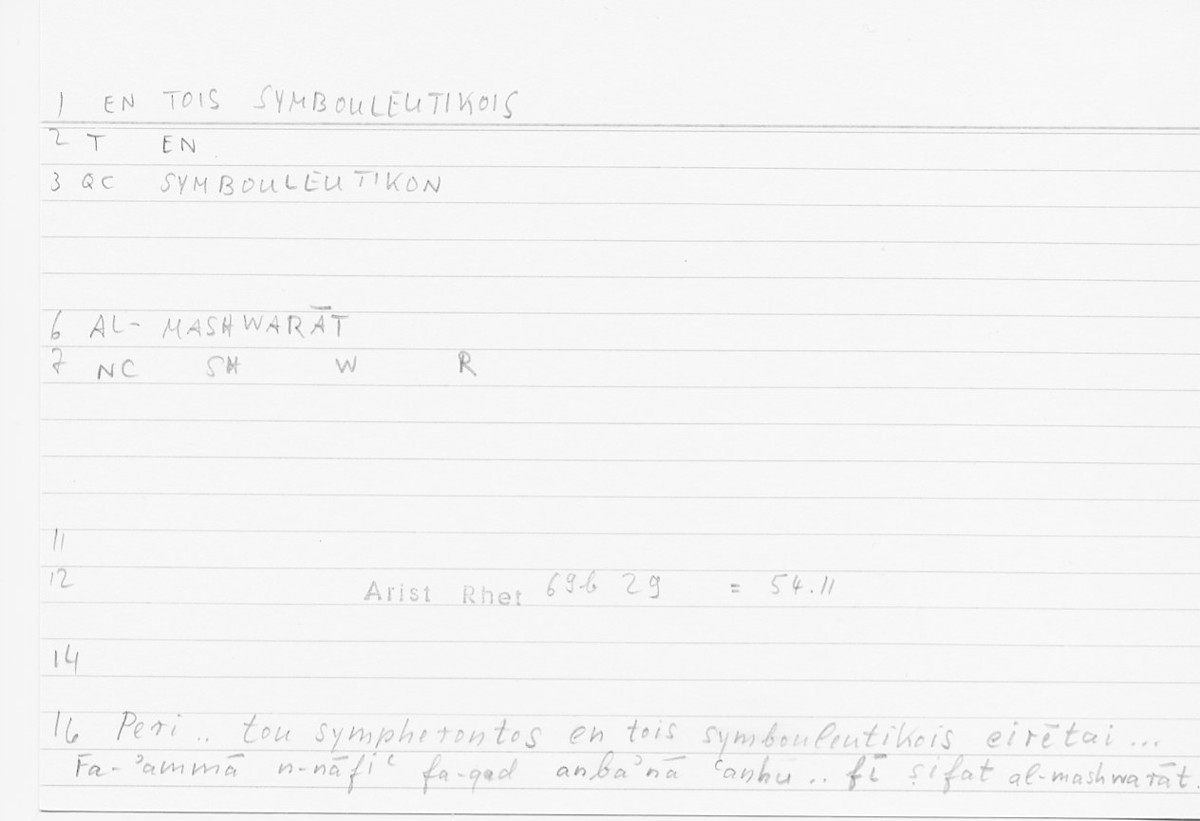 1 EN TOIS SYMBOULEUTIKOIS
2 T EN
3 QC SYMBOULEUTIKON
6 AL- MASHWARĀT
7 NC SH W R
11
12 Arist Rhet 69b 29 = 54.11
14
16 Peri .. tou sympherontos en tois symbouleutikois eirētai ...
Fa-ʾammā n-nāfiʿ fa-qad anbaʾnā ʿanhu .. fī ṣifat al-mashwarāt.